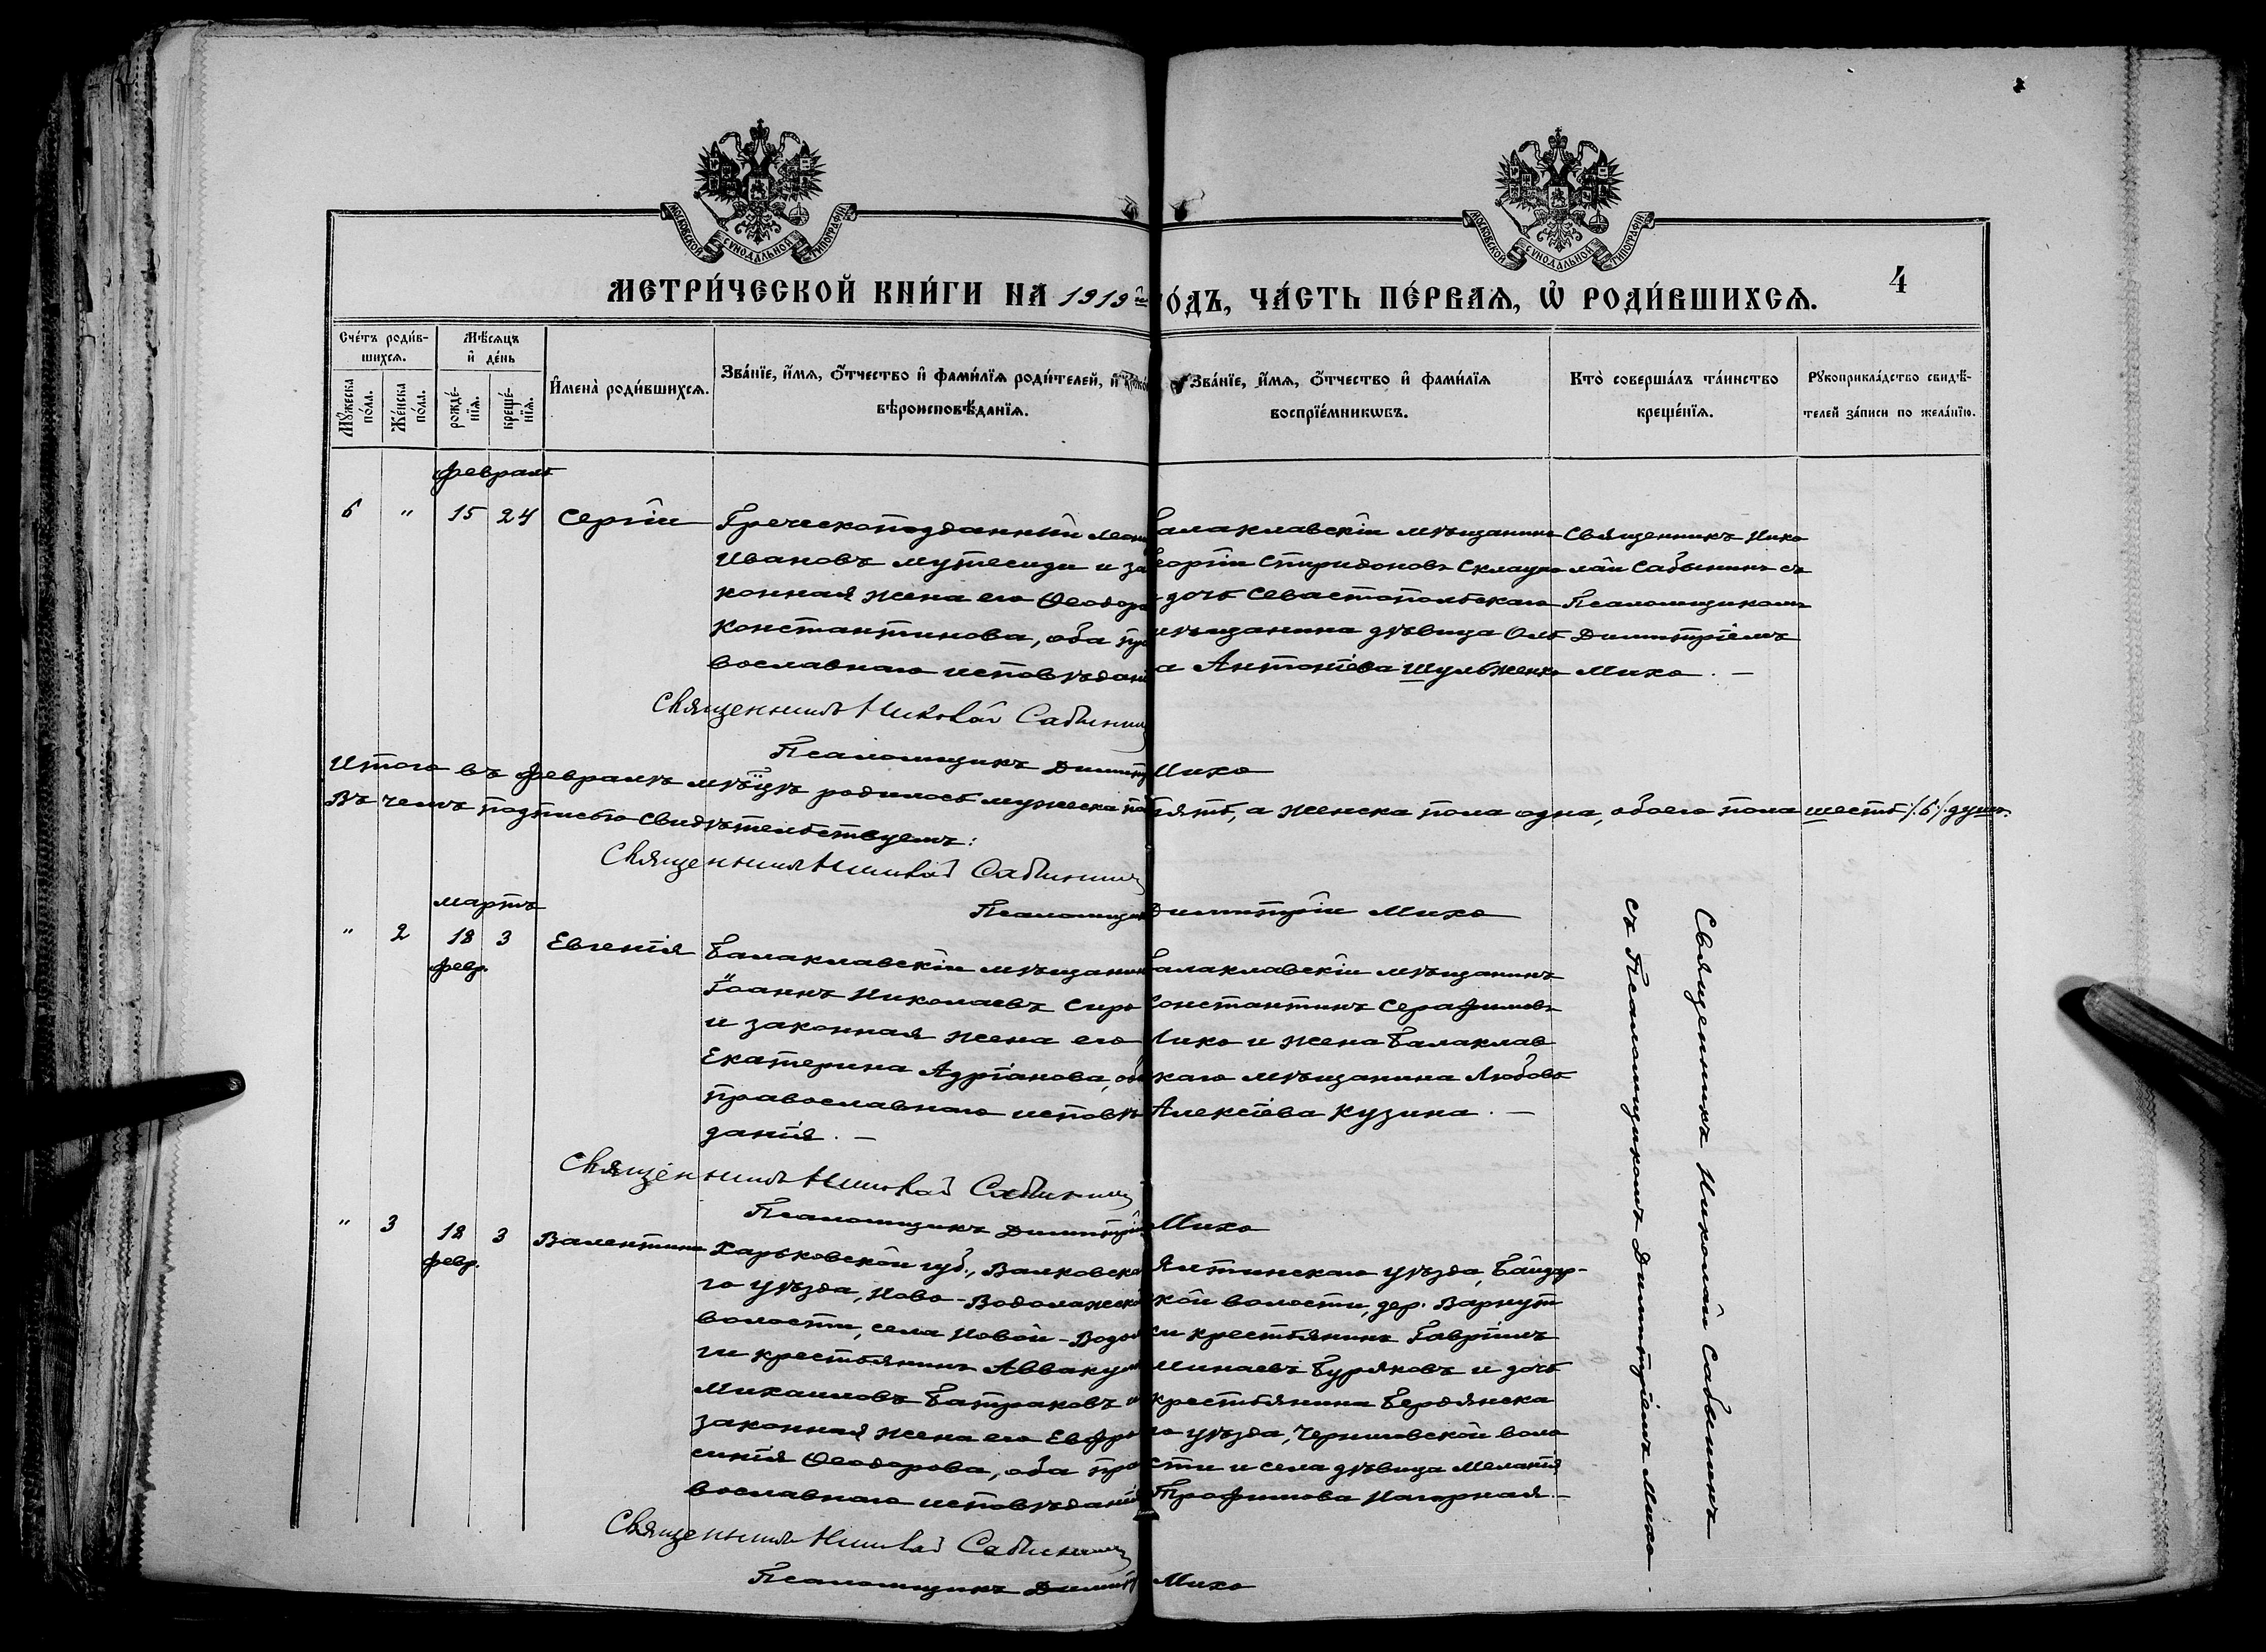 МОСКОВСКОЙ СѴНОДАЛЬНОЙ ТИПОГРАФІИ
МОСКОВСКОЙ СѴНОДАЛЬНОЙ ТИПОГРАФІИ
4
МЕТРИ́ЧЕСКОЙ КНИ́ГИ НА 1919 й го́дъ, ЧА́СТЬ ПЕ́РВАѦ, Ѡ҆ РОДИ́ВШИХСѦ.
Сче́тъ роди́в-
шихсѧ.
Мꙋ́жеска по́ла.
Же́нска по́ла.
Мѣ́сѧцъ
и҆ де́нь
рожде́-
нїѧ.
креще́-
нїѧ.
И҆мена̀ роди́вшихсѧ.
Зва́нїе, и҆́мѧ, ѻ҆́тчество и҆ фами́лїѧ роди́телей, и҆ како́
вѣроисповѣ́данїѧ.
Зва́нїе, и҆́мѧ, ѻ҆́тчество и҆ фами́лїѧ
воспрїе́мникѡвъ.
Кто̀ соверша́лъ та́инство
креще́нїѧ.
Рꙋкоприкла́дство свидѣ́-
телей за́писи по жела́нїю.
февраль
6 " 15 24 Сергій
Греческоподданный
Ивановъ Мутесиди и за
конная жена его Ѳеодора
Константинова, оба пра
вославнаго исповѣдані
Балаклавскій мѣщанинъ
Георгій Спиридоновъ
дочь Севастопольскаго
мѣщанина дѣвица Оль
а Антоніева Шульженко
Священникъ Нико
лай Сабынинъ съ
Псаломщикомъ
Димитріемъ
Михо. —
Священникъ Николай Сабынинъ
Псаломщикъ Димитр Михо
Итого въ февралѣ мѣсяцѣ родилось мужеска по пять, а женска пола одна, обоего пола шесть /.6./ душъ.
Въ чемъ подписью свидѣтельствуемъ:
Священникъ Николай Сабынинъ
Псаломщик Димитрій Михо
мартъ
" 2 18 3 Евгенія
февр.
Балаклавскій мѣщанин
Іоаннъ Николаевъ Сиро
и законная жена его
Екатерина Адріанова, об
православнаго исповѣ
данія. —
Балаклавскій мѣщанинъ
Константинъ Серафимовъ
и жена Балаклав
скаго мѣщанина Любовь
Алексіева Кузина. —
Священникъ Николай Сабынинъ
Псаломщикъ Димитрій Михо
" 3 18 3 Валентина
февр.
Харьковской губ., Валковска
го уѣзда, Ново-Водолажской
волости, села Новой-Водол
ги крестьянинъ Аввакум
Михаиловъ Батраковъ и
законная жена его Евфро
синія Ѳеодорова, оба пра
вославнаго исповѣданія
Ялтинскаго уѣзда, Байдар-
кой волости, дер. Варнут
ки крестьянинъ Гавріилъ
Минаевъ Буряковъ и дочь
крестьянина Бердянска
го уѣзда, Черниговской воло
сти и села дѣвица Меланія
Трофимова Нагорная. —
Священникъ Николай Сабынинъ
съ Псаломщикомъ Димитріемъ Михо.
Священникъ Николай Сабынинъ
Псаломщикъ Димитр Михо